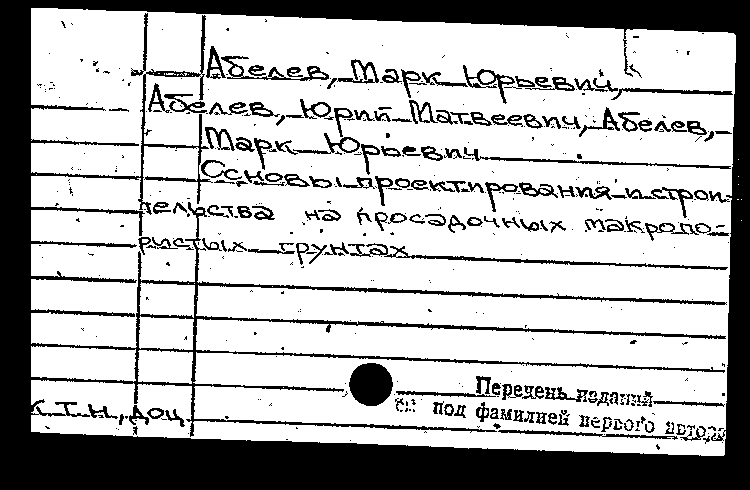 Абелев, Марк Юрьевич,
Абелев, Юрий Матвеевич, Абелев,
Марк Юрьевич
Основы проектирования и строи-
тельства на просадочных макропо-
ристых грунтах
Перечень изданий
см под фамилией первого автора
к.т.н., доц